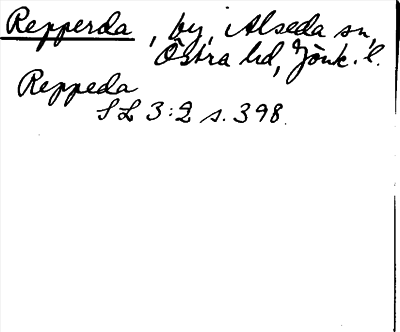 Repperda, by, Alseda sn,
Östra hd, Jönk. l.
Reppeda
SL 3:2 s. 398.